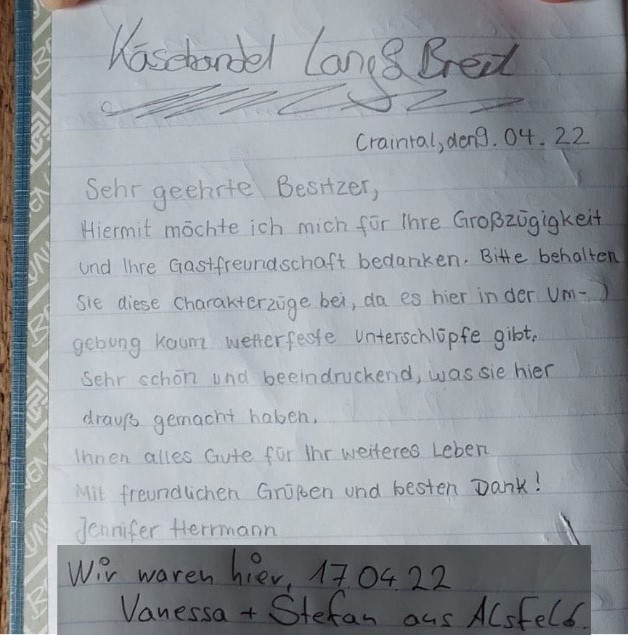 Käsehandel Lang & Breit
Craintal, den 9.04.22
Sehr geehrte Besitzer,
Hiermit möchte ich mich für Ihre Großzügigkeit
und Ihre Gastfreundschaft bedanken. Bitte behalten
Sie diese Charakterzüge bei, da es hier in der Um-
gebung kaum wetterfeste Unterschlüpfe gibt.
Sehr schön und beeindruckend, was sie hier
drauß gemacht haben.
Ihnen alles Gute für Ihr weiteres Leben
Mit freundlichen Grüßen und besten Dank!
Jennifer Herrmann
Wir waren hier, 17.04.22
Vanessa + Stefan aus Alsfeld.